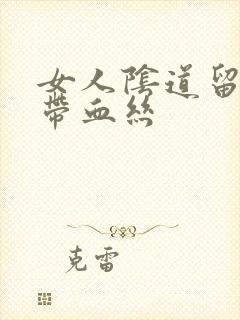 女人陰道留
帶血絲
克雷